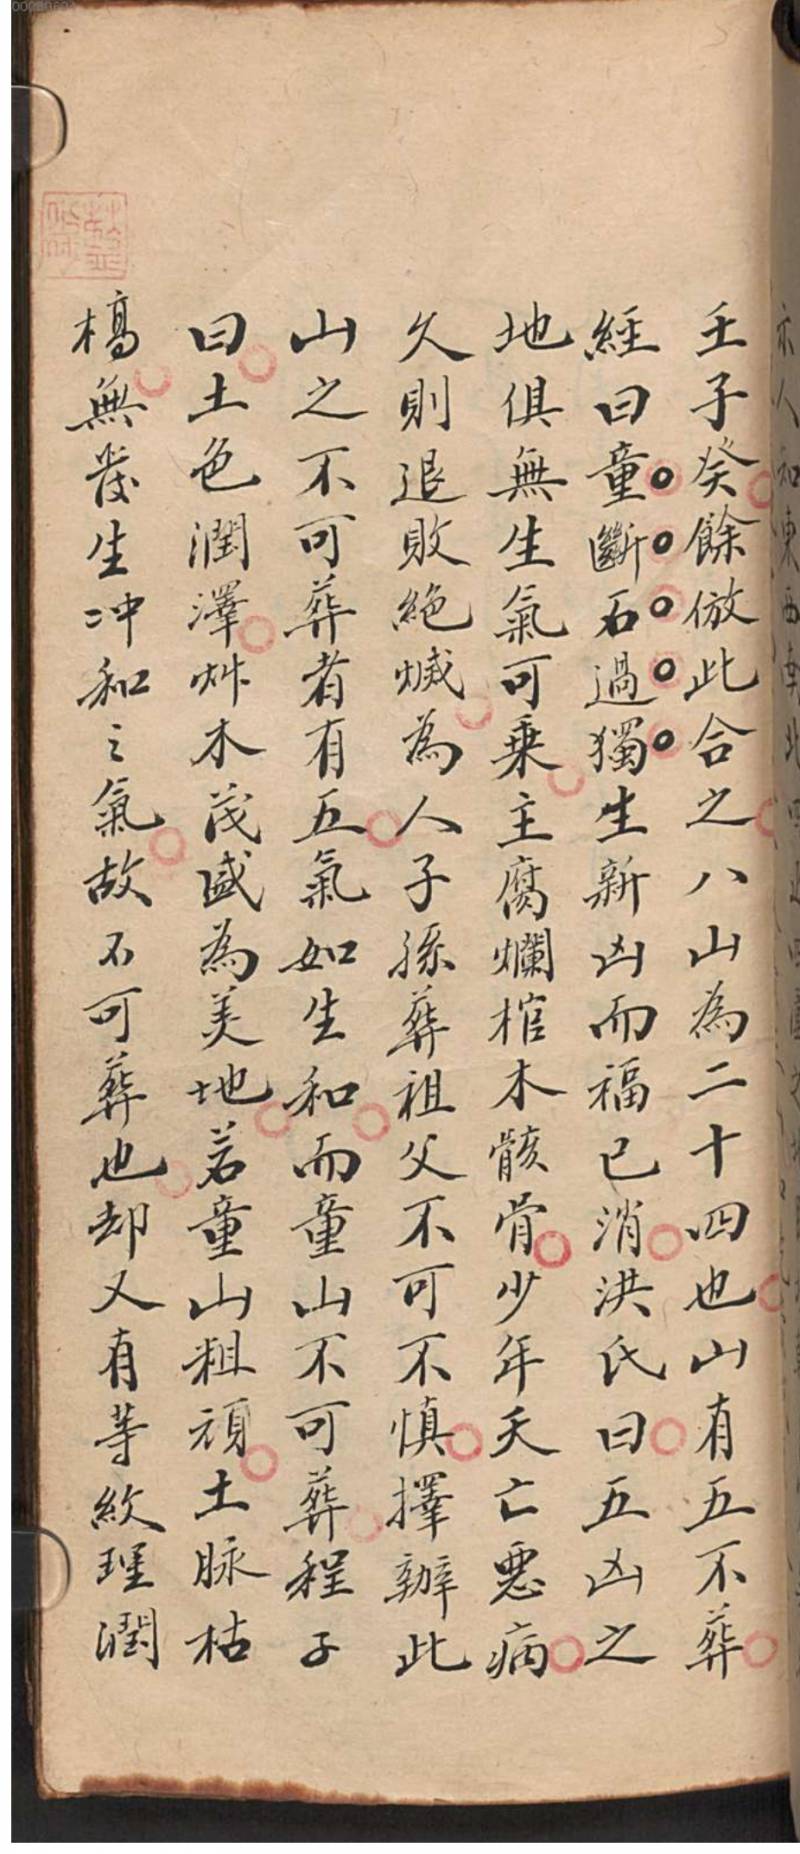 壬子癸餘倣此合之八山為二十四也山有五不葬
經曰童斷石過獨生新凶而福已消洪氏曰五凶之
地俱無生氣可乗主腐爛棺木骸骨少年夭亡惡病
久則退敗絶烕為人子孫葬祖父不可不慎擇辦此
山之不可葬者有五氣如生和而童山不可葬程子
曰土色潤澤艸木茂盛為美地若童山粗頑土脉枯
槁無發生冲和之氣故不可葬也却又有等紋理潤